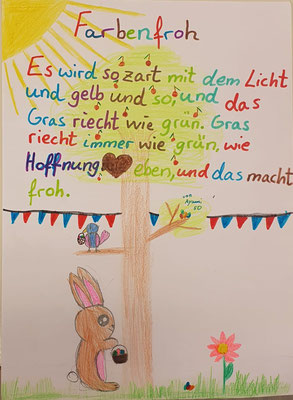 Farbenfroh
Es wird so zart mit dem Licht
und gelb und so, und das
Gras riecht wie grün. Gras
riecht immer wie grün, wie
Hoffnung eben, und das macht
froh.